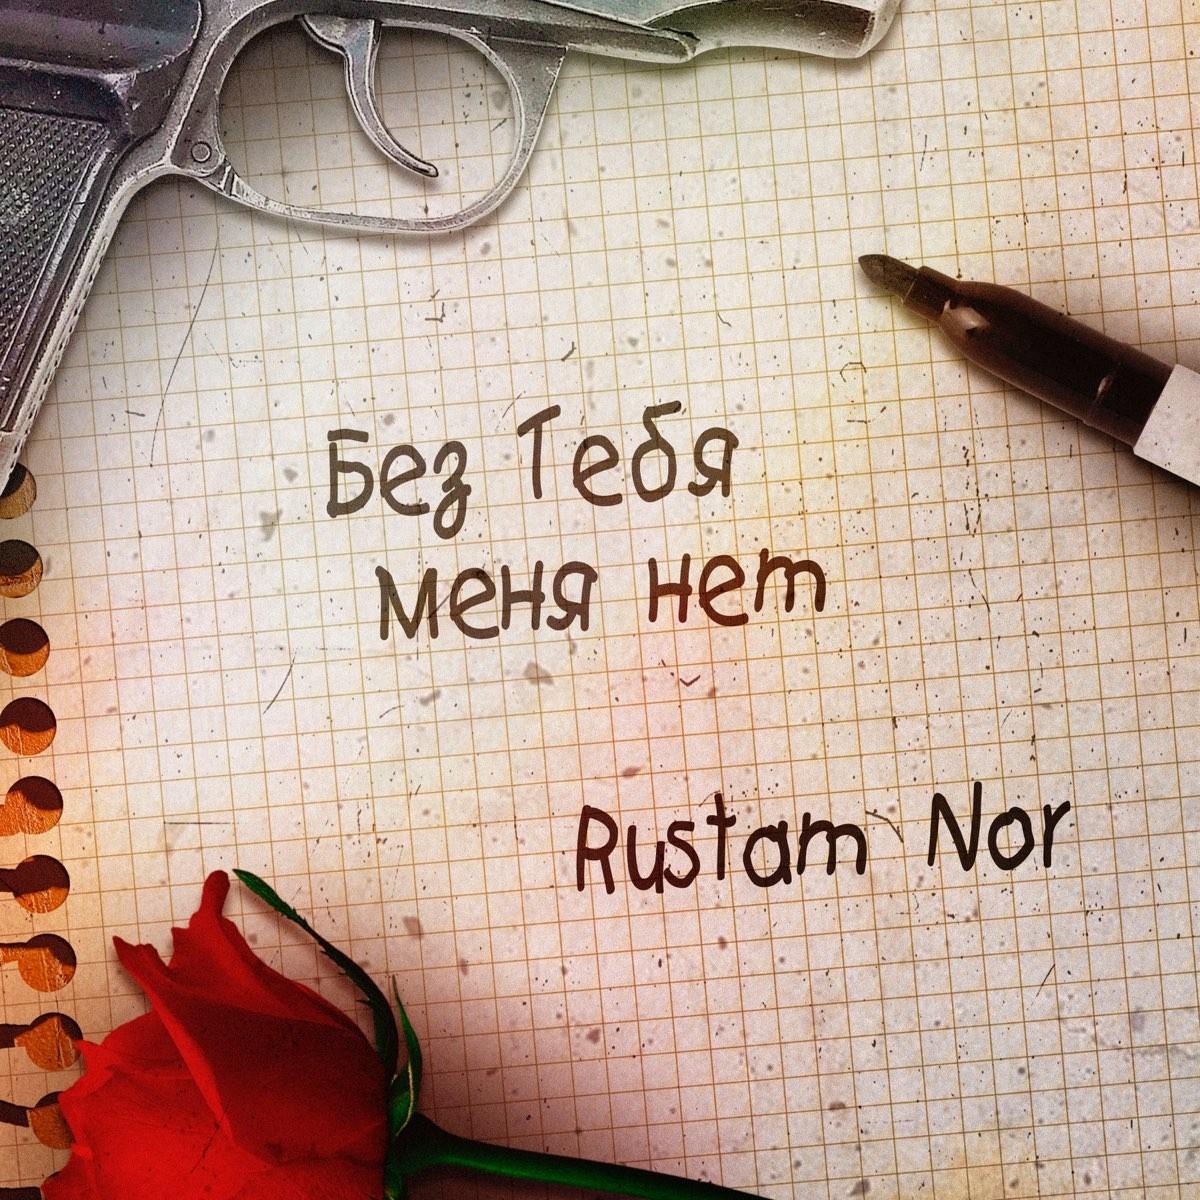 Без Тебя
меня нет
Rustam Nor